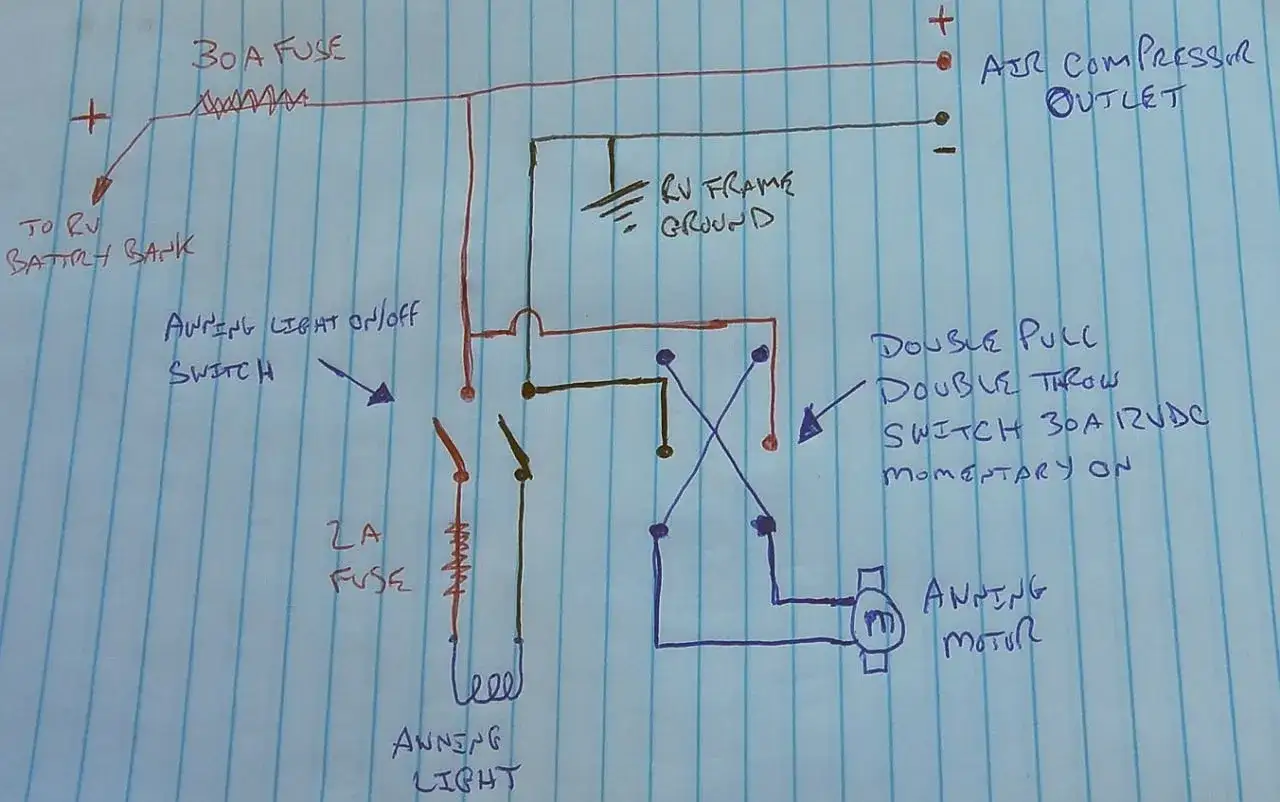 30A FUSE
+
+
AIR COMPRESSOR
OUTLET
-
TO RV
BATTRY BANK
RV FRAME
GROUND
AWNING LIGHT ON/OFF
SWITCH
DOUBLE PULL
DOUBLE THROW
SWITCH 30A 12VDC
MOMENTARY ON
2A
FUSE
M
AWNING
MOTOR
AWNING
LIGHT